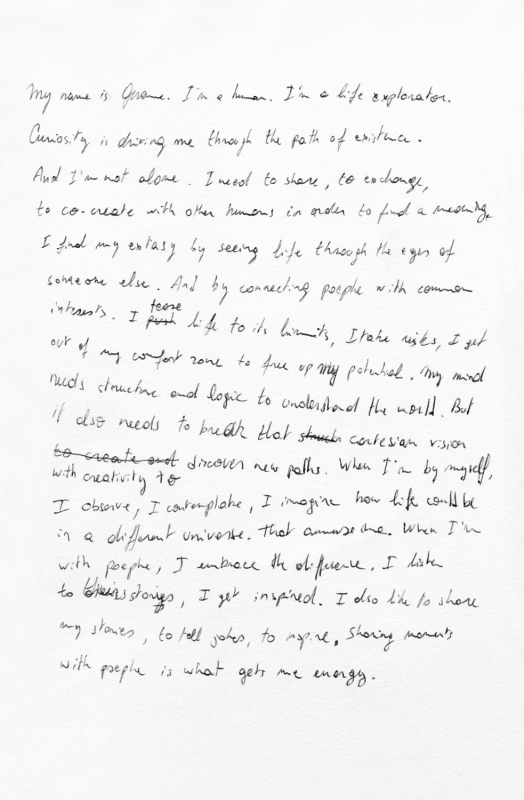 My name is Gerome. I'm a human. I'm a life explorator.
Curiosity is driving me through the path of existence.
And I'm not alone. I need to share, to exchange,
to co-create with other humans in order to find a meaning.
I find my extasy by seeing life through the eyes of
someone else. And by connecting poephe with common
interests. I push tease life to its limits, I take risks, I get
out of my comfort zone to free up my potential. My mind
needs structure and logic to understand the world. But
it also needs to break that struch cartesian vision
to create and discover new paths. When I'm by myself,
with creativity to
I observe, I contemplate, I imagine how life could be
in a different universe. That amuse me. When I'm
with poephe, I embrace the difference. I listen
to their stories, I get inspired. I also like to share
my stories, to tell jokes, to inspire. Sharing moments
with poephe is what gets me energy.